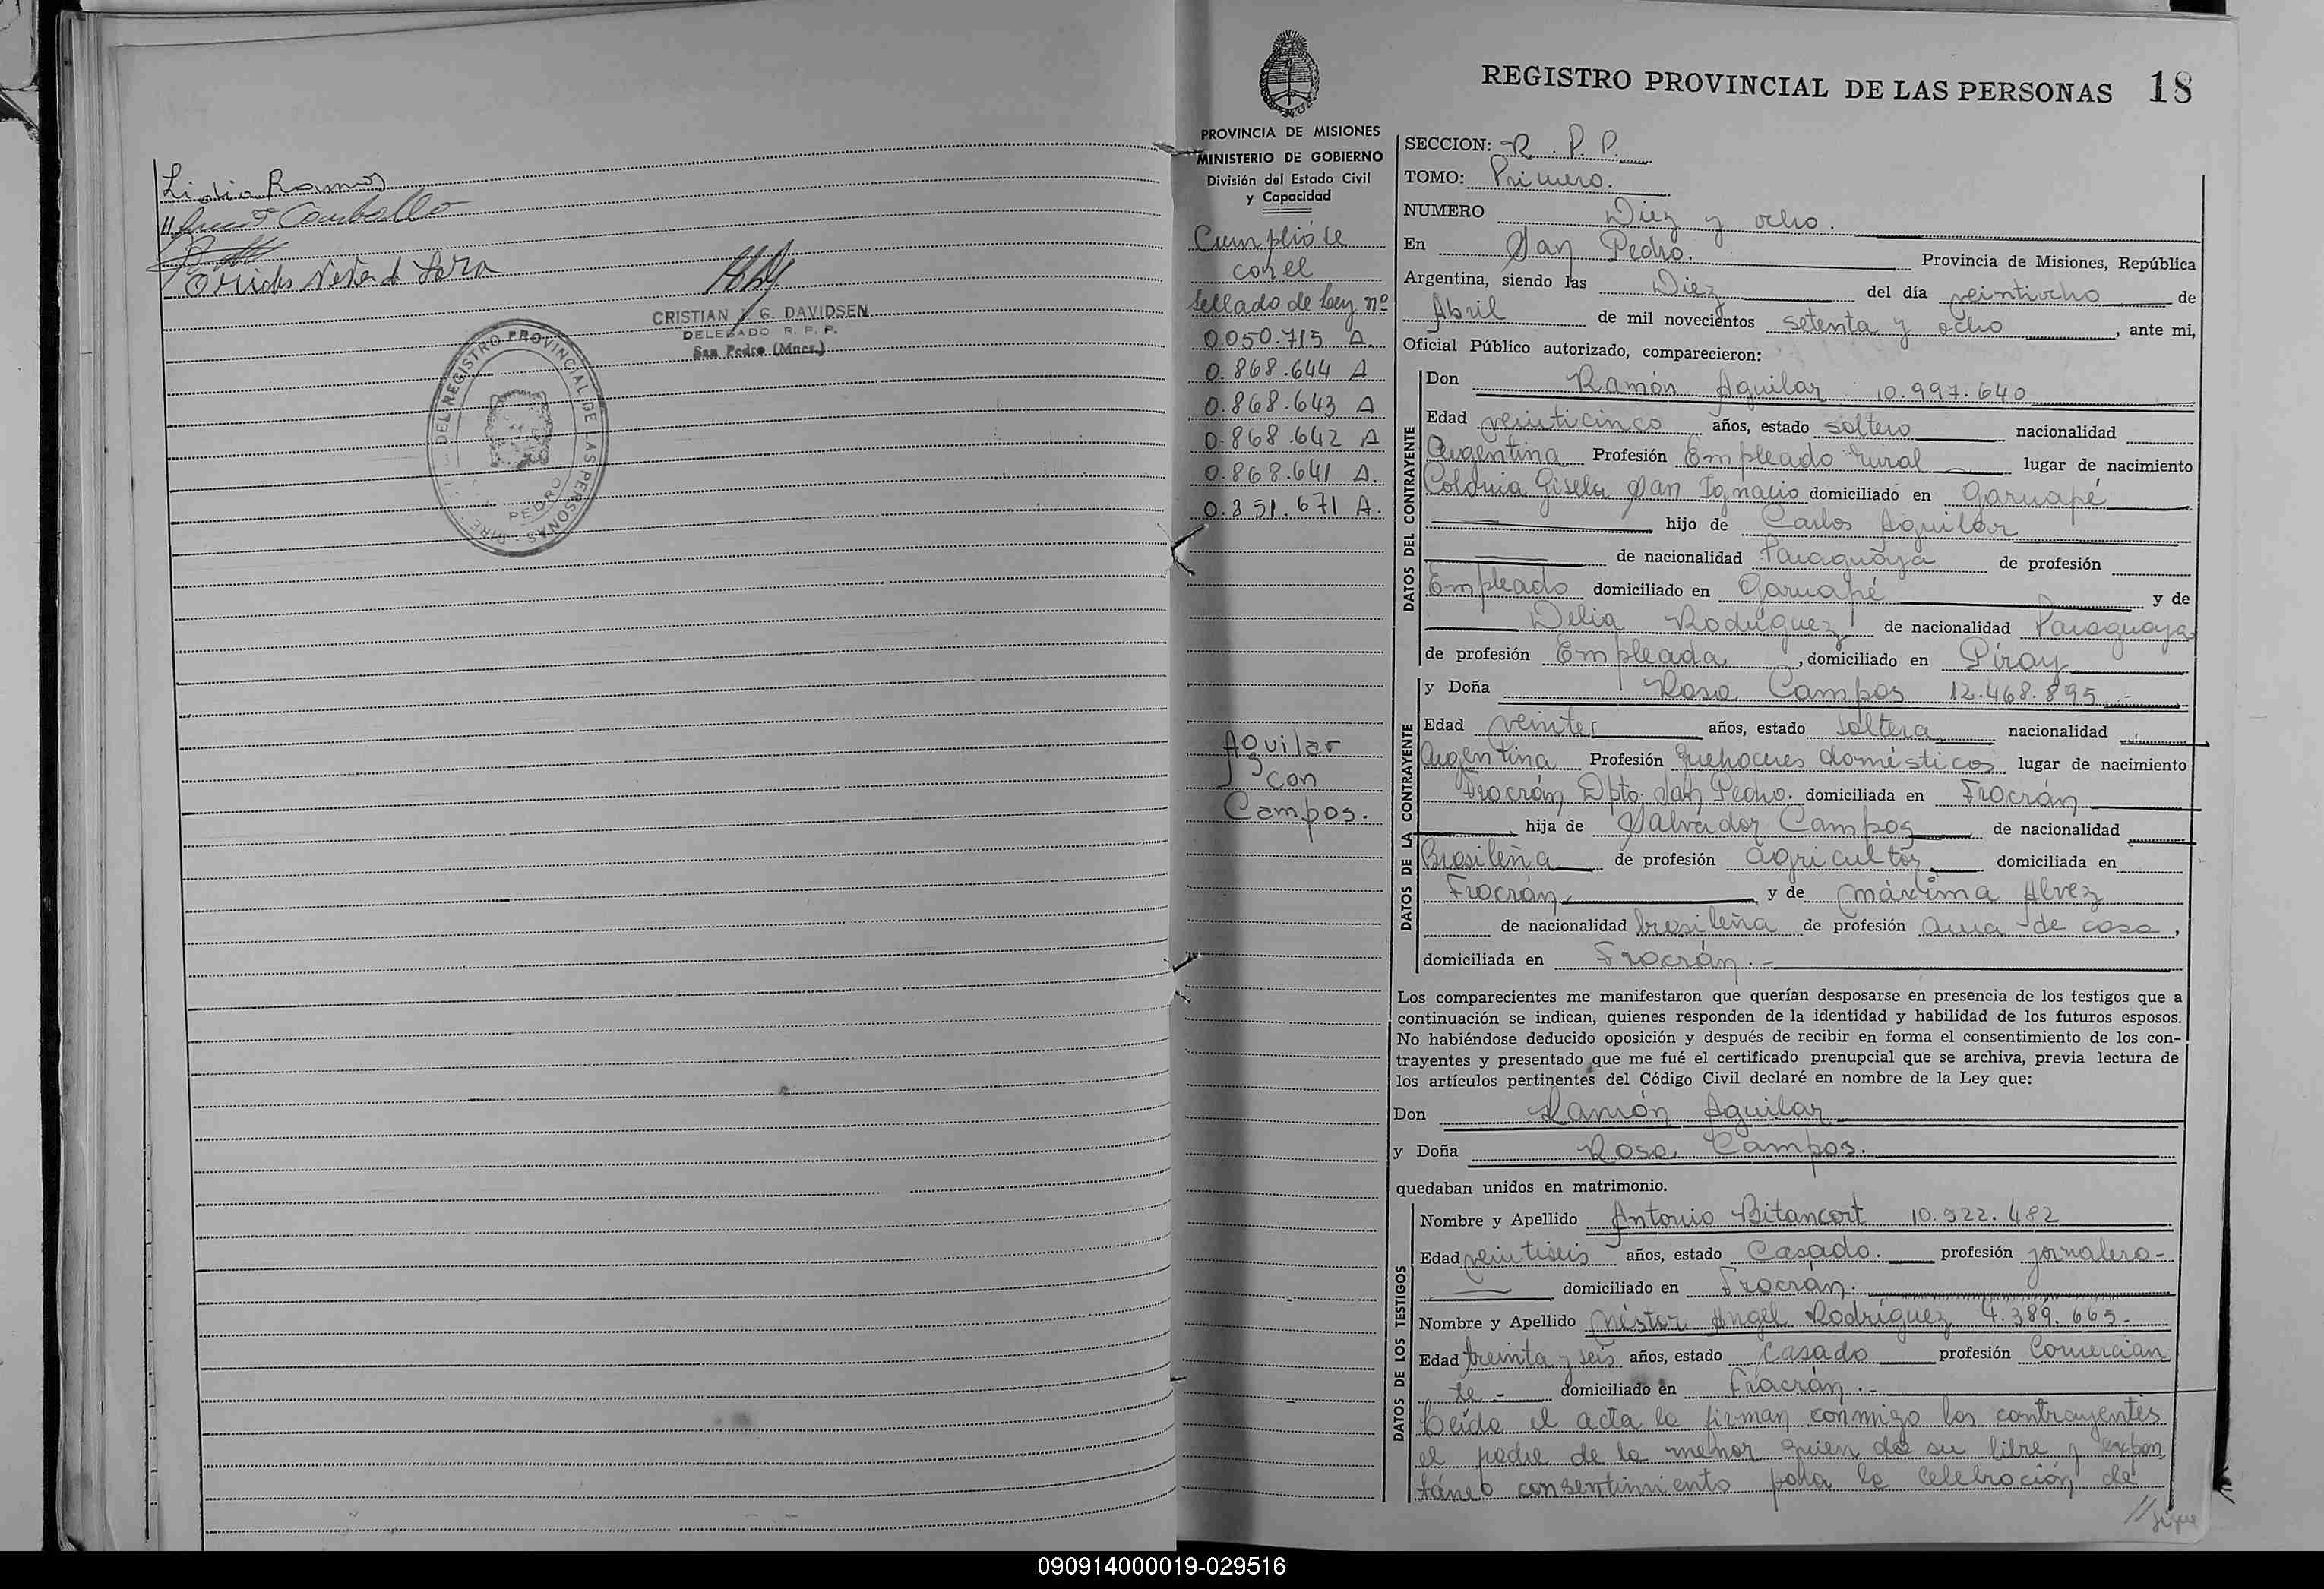 Lidia Ramos
CRISTIAN J. G. DAVIDSEN
DELEGADO R. P. P.
San Pedro (Mnes.)
DEL REGISTRO PROVINCIAL DE LAS PERSONAS
PEDRO
REGISTRO PROVINCIAL DE LAS PERSONAS 18
PROVINCIA DE MISIONES
MINISTERIO DE GOBIERNO
División del Estado Civil
y Capacidad
Cumplióse
con el
Sellado de Ley nº
0.050.715 A.
0.868.644 A
0.868.643 A
0.868.642 A
0.868.641 A.
0.351.671 A.
Aguilar
con
Campos.
SECCION: R. P. P.
TOMO: Primero.
NUMERO Diez y ocho.
En San Pedro. Provincia de Misiones, República
Argentina, siendo las Diez del día veintiocho de
Abril de mil novecientos setenta y ocho, ante mi,
Oficial Público autorizado, comparecieron:
DATOS DEL CONTRAYENTE
Don Ramón Aguilar 10.997.640
Edad veinticinco años, estado soltero nacionalidad
Argentina Profesión Empleado rural lugar de nacimiento
Colonia Gisela San Ignacio domiciliado en Garuapé
hijo de Carlos Aguilar
de nacionalidad Paraguaya de profesión
Empleado domiciliado en Garuapé y de
Delia Rodríguez de nacionalidad Paraguaya
de profesión Empleada, domiciliado en Piray
DATOS DE LA CONTRAYENTE
y Doña Rosa Campos 12.468.895
Edad veinte años, estado soltera nacionalidad
Argentina Profesión quehaceres domésticos lugar de nacimiento
Fracrán Dpto. San Pedro. domiciliada en Fracrán
hija de Salvador Campos de nacionalidad
Brasileña de profesión agricultor domiciliada en
Fracrán y de Máxima Alvez
de nacionalidad brasileña de profesión ama de casa,
domiciliada en Fracrán.-
Los comparecientes me manifestaron que querían desposarse en presencia de los testigos que a
continuación se indican, quienes responden de la identidad y habilidad de los futuros esposos.
No habiéndose deducido oposición y después de recibir en forma el consentimiento de los con-
trayentes y presentado que me fué el certificado prenupcial que se archiva, previa lectura de
los artículos pertinentes del Código Civil declaré en nombre de la Ley que:
Don Ramón Aguilar
y Doña Rosa Campos.
quedaban unidos en matrimonio.
DATOS DE LOS TESTIGOS
Nombre y Apellido Antonio Bitancort 10.922.482
Edad veintiseis años, estado Casado. profesión jornalero-
domiciliado en Fracrán.
Nombre y Apellido Néstor Angel Rodríguez 4.389.665-
Edad treinta y seis años, estado casado profesión Comercian
te- domiciliado en Fracrán.-
Leída el acta la firman conmigo los contrayentes
el padre de la menor quien da su libre y expon
táneo consentimiento para la celebración de
//sigue
090914000019-029516